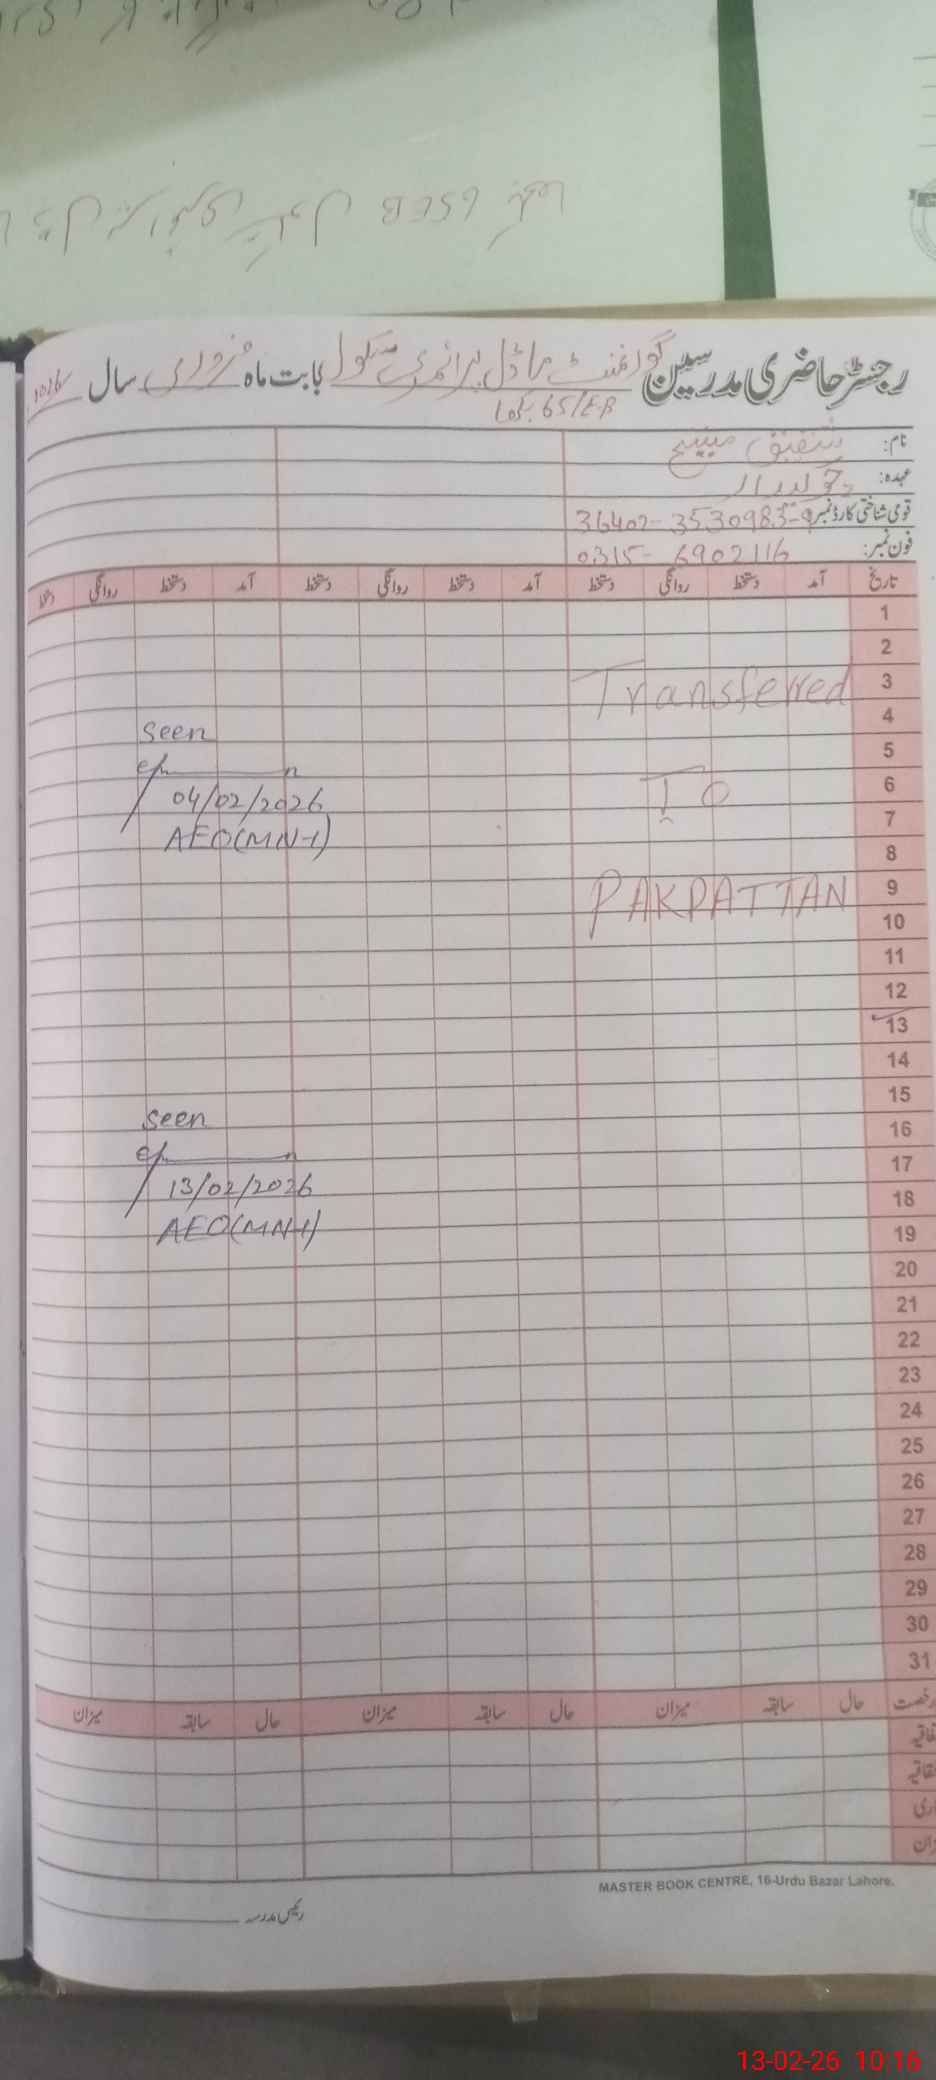 رجسٹر حاضری مدرسین گورنمنٹ ماڈل پرائمری سکول بابت ماہ فروری سال
65/EB
نام: شفیق مسیح
عہدہ: چوکیدار
قومی شناختی کارڈ نمبر: 36402-3530983-9
فون نمبر: 0315-6902116
تاریخ آمد دستخط روانگی دستخط آمد دستخط روانگی دستخط آمد دستخط روانگی
1
2
3 Transferred
4
seen
5
6 To
04/02/2026
7
AEO(MN-1)
8
9 PAKPATTAN
10
11
12
13
14
15
seen
16
17
13/02/2026
18
AEO(MN-1)
19
20
21
22
23
24
25
26
27
28
29
30
31
رخصت حال سابقہ میزان حال سابقہ میزان حال سابقہ میزان
MASTER BOOK CENTRE, 16-Urdu Bazar Lahore.
رئیس مدرسہ
13-02-26 10:16